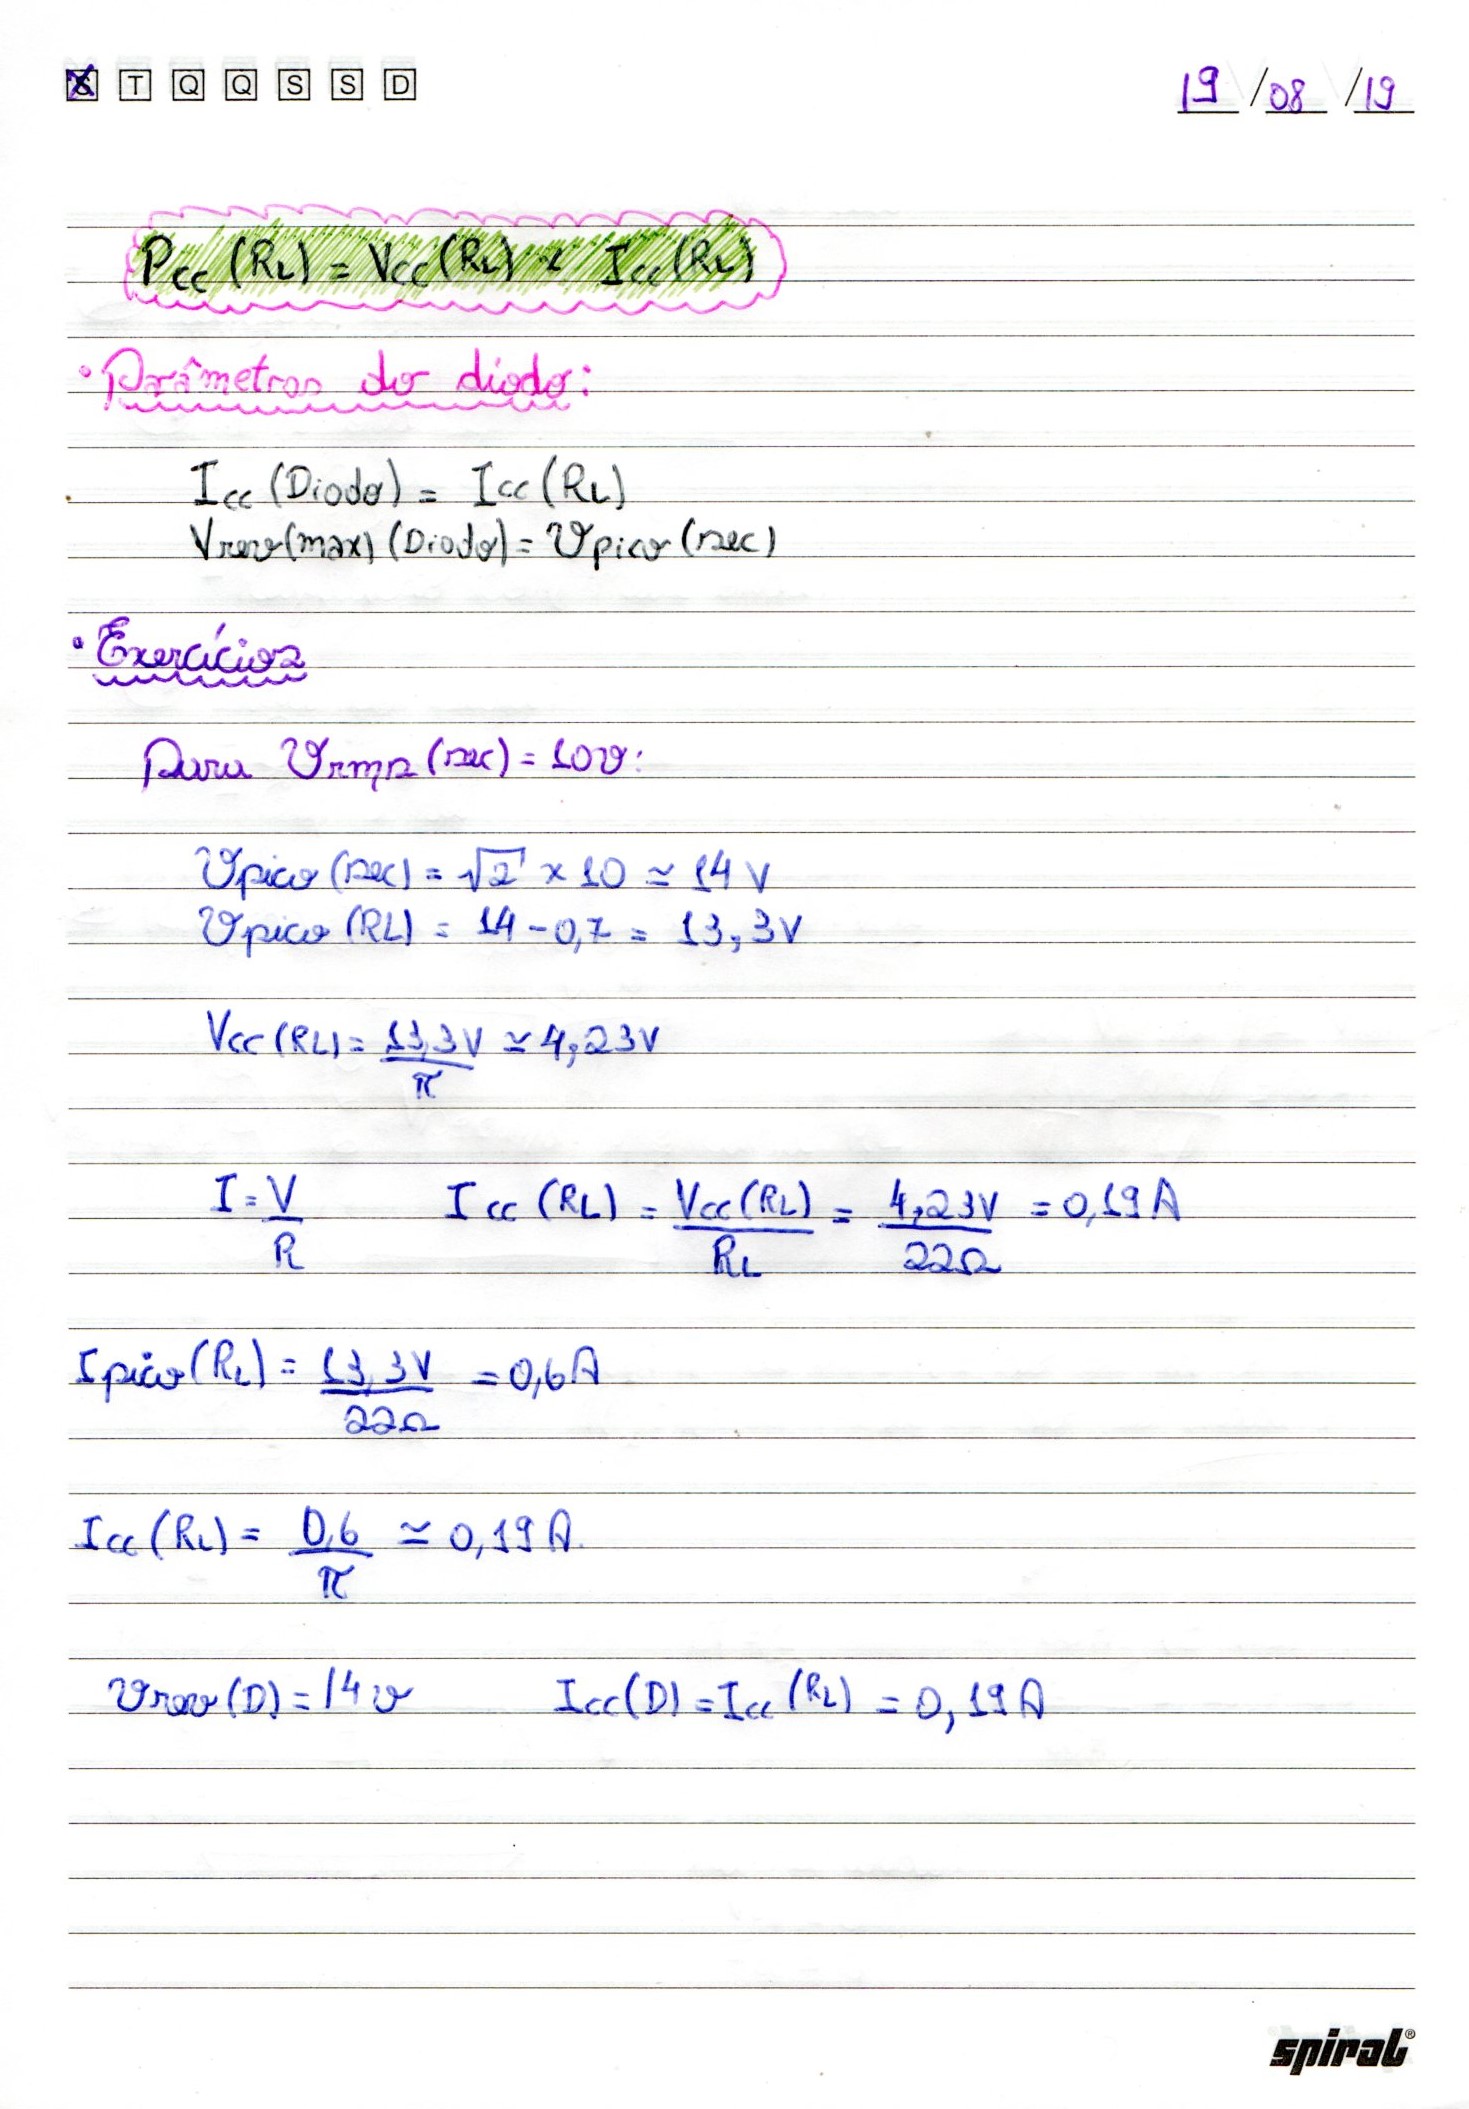 S T Q Q S S D 19/08/19
Pcc (RL) = Vcc (RL) x Icc (RL)
• Parâmetros do diodo:
Icc (Diodo) = Icc (RL)
Vrev(max) (Diodo) = Vpico (sec)
• Exercícios
Para Vrms (sec) = 10v:
Vpico (sec) = √2 x 10 ≃ 14 V
Vpico (RL) = 14 - 0,7 = 13,3V
Vcc (RL) = 13,3V/π ≃ 4,23V
I = V/R Icc (RL) = Vcc (RL)/RL = 4,23V/22Ω = 0,19 A
Ipico (RL) = 13,3V/22Ω = 0,6 A
Icc (RL) = 0,6/π ≃ 0,19 A.
Vrev (D) = 14 v Icc (D) = Icc (RL) = 0,19 A
spiral®